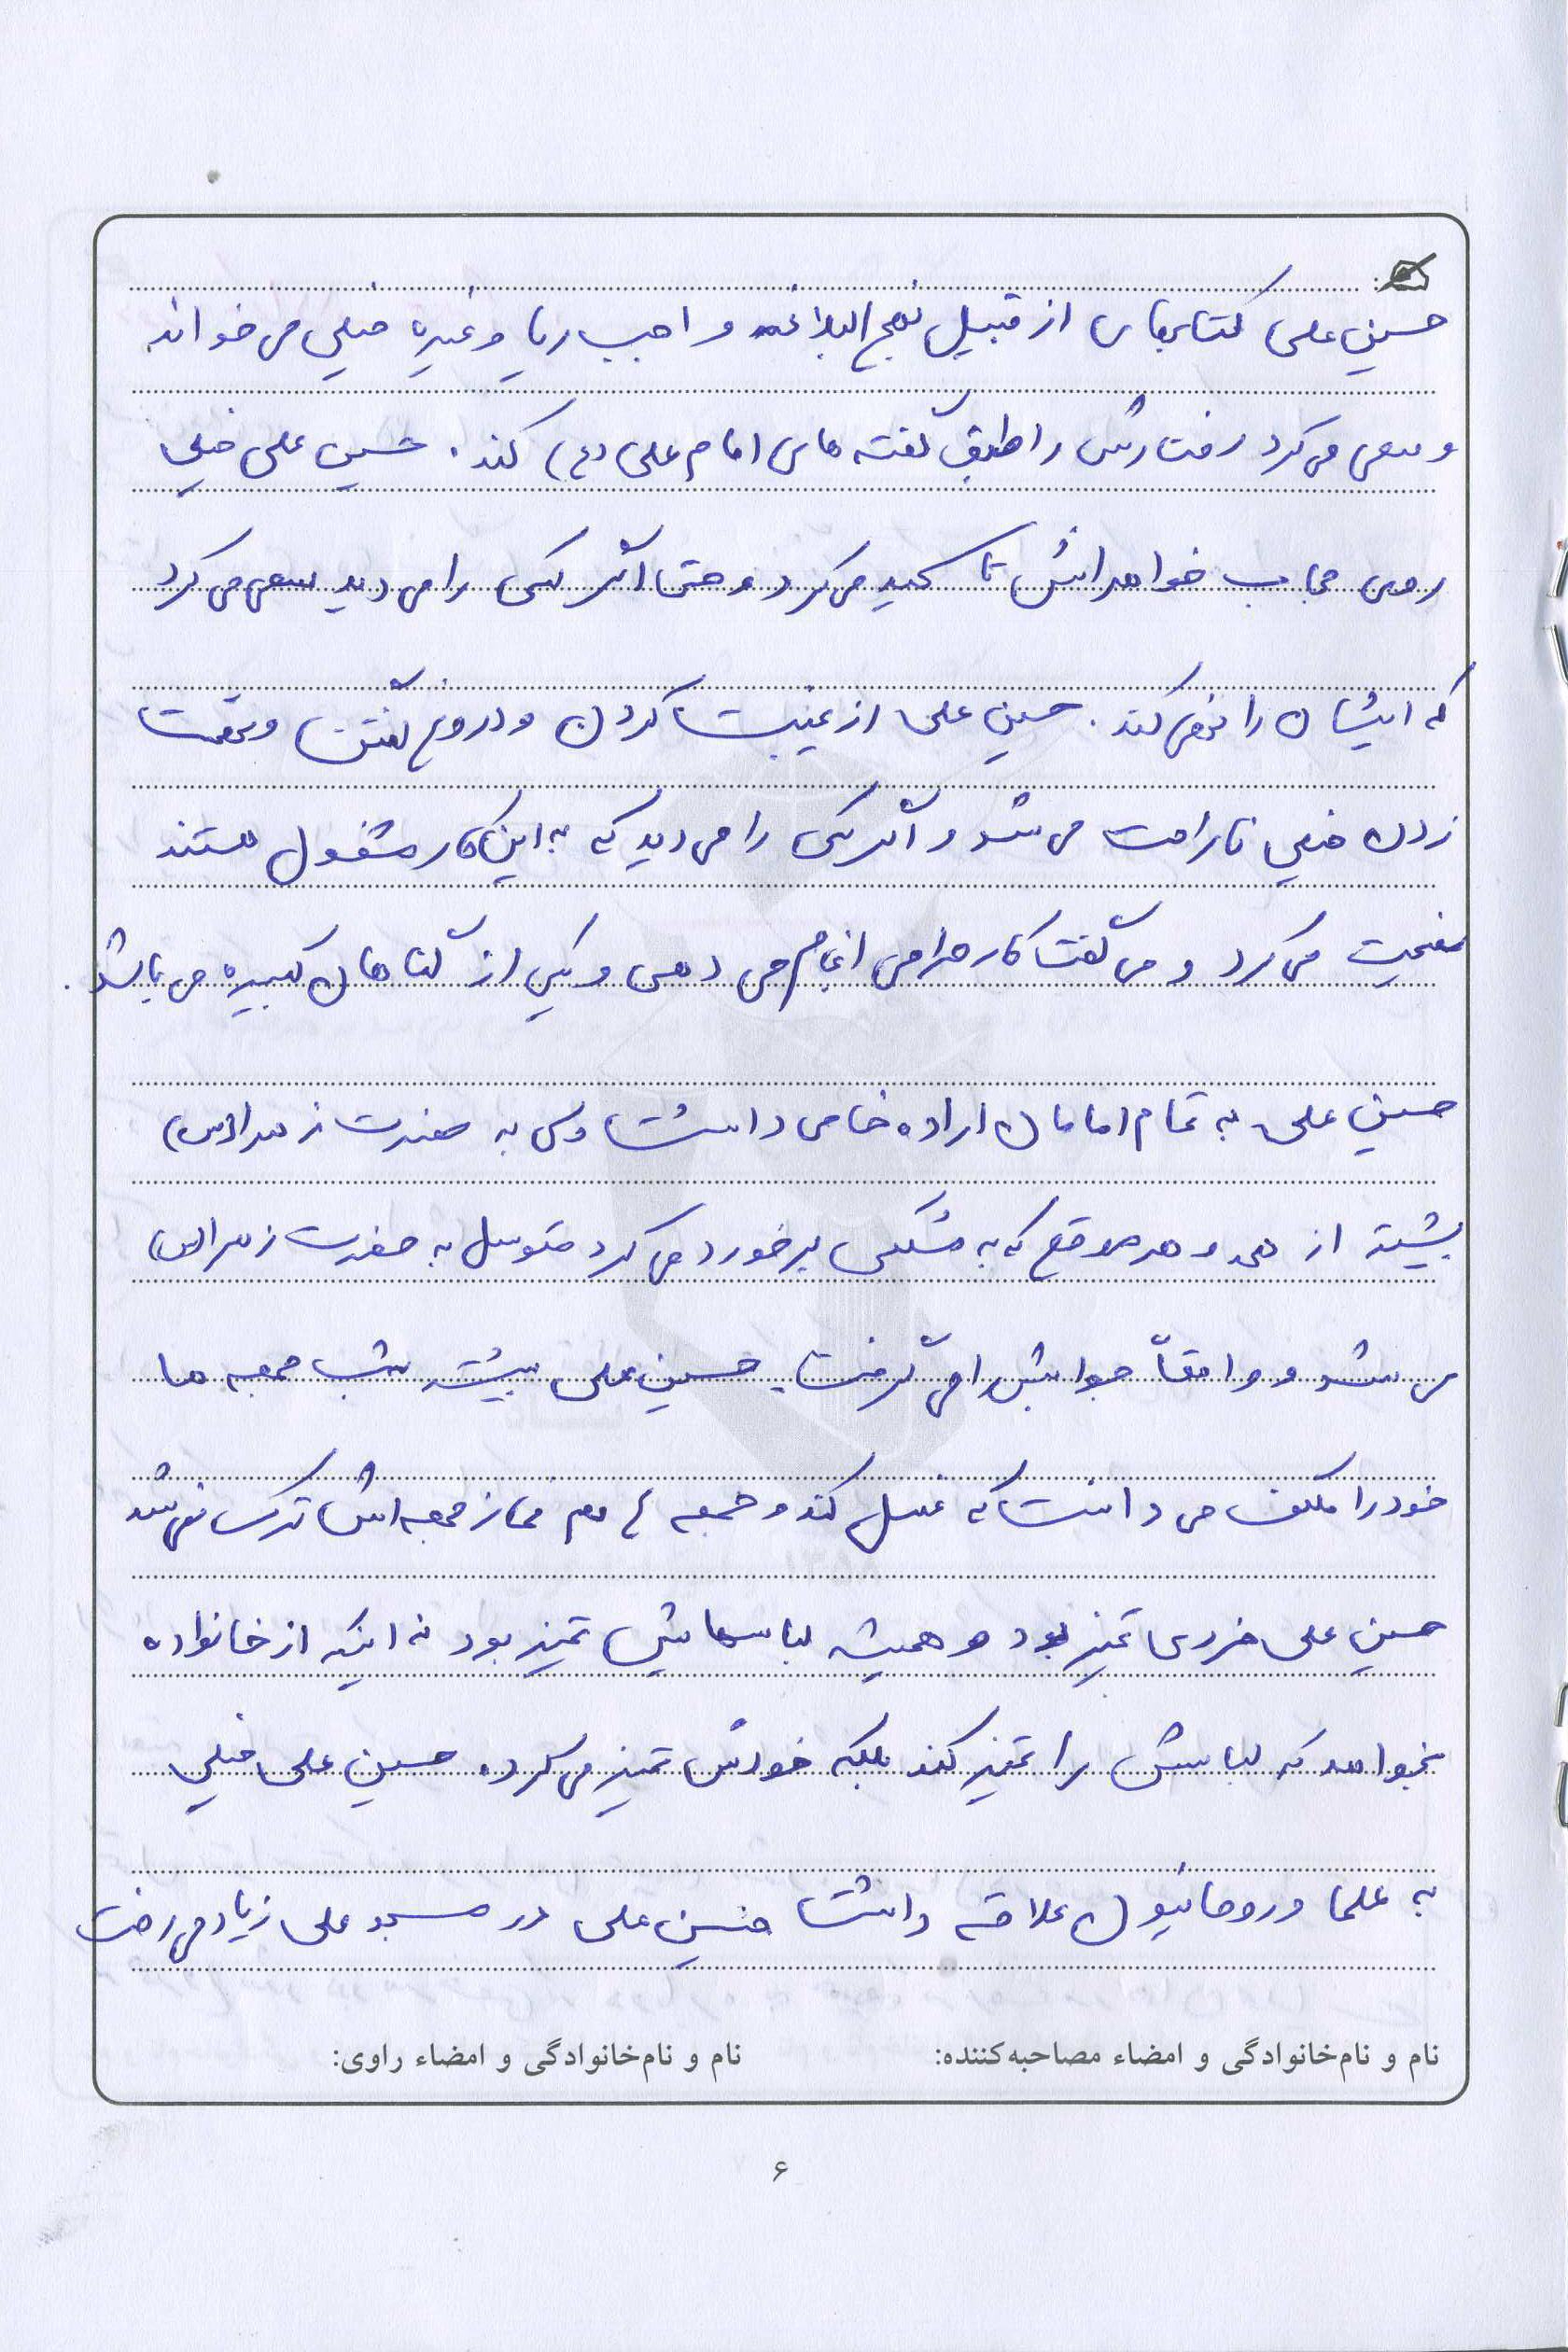 حسین علی کتابهای از قبیل نهج البلاغه و و غیره خیلی می خواند
و سعی می کرد رفتارش را طبق گفته های امام علی (ع) کند. حسین علی خیلی
روی حجاب خواهرانش تاکید می کرد و حتما اگر کسی را می دید سعی می کرد
که ایشان را نهی کند. حسین علی از غیبت کردن و دروغ گفتن و تهمت
زدن خیلی ناراحت می شد و اگر کسی را می دید که به این کار مشغول هستند
نصحیت می کرد و می گفت کار حرامی انجام می دهی و یکی از گناهان کبیره می باشد.
حسین علی به تمام امامان اراده خاصی داشت ولی به حضرت زهرا (س)
بیشتر از همه و هر موقع که به مشکلی برخورد می کرد متوسل به حضرت زهرا (س)
می شد و واقعاً جوابش را می گرفت. حسین علی بیشتر شب جمعه ها
خود را مکلف می دانست که غسل کند و جمعه ها هم نماز جمعه اش ترک نمی شد
حسین علی فردی تمیز بود و همیشه لباسهایش تمیز بود نه اینکه از خانواده
بخواهد که لباسش را تمیز کند بلکه خودش تمیز می کرد. حسین علی خیلی
به علما و روحانیون علاقه داشت حسین علی در مسجد علی زیاد می رفت
نام و نام‌خانوادگی و امضاء مصاحبه‌کننده: نام و نام‌خانوادگی و امضاء راوی:
۶